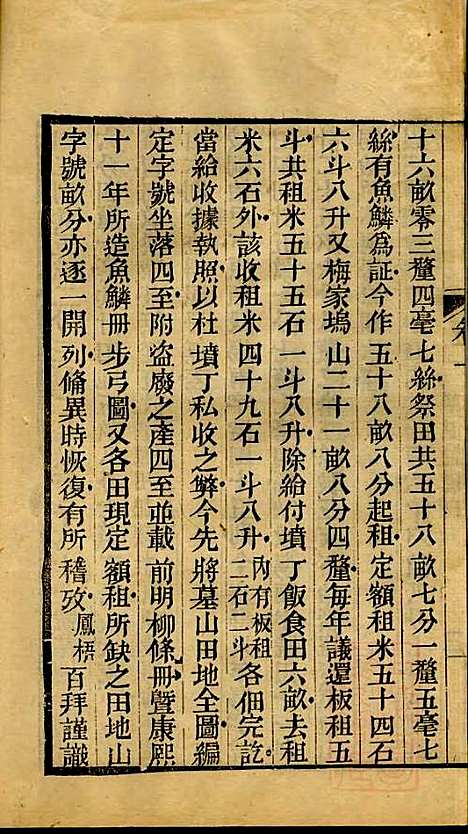 十六畝零三釐四毫七絲祭田共五十八畝七分一釐五毫七
絲有魚鱗爲証今作五十八畝八分起租定額租米五十四石
六斗八升又梅家塢山二十一畝八分四釐每年議還板租五
斗共租米五十五石一斗八升除給付墳丁飯食田六畝去租
米六石外該收租米四十九石一斗八升內有板租二石二斗各佃完訖
當給收據執照以杜墳丁私收之弊今先將墓山田地全圖編
定字號坐落四至附盜廢之產四至並載前明柳條冊暨康熙
十一年所造魚鱗冊步弓圖又各田現定額租所缺之田地山
字號畝分亦逐一開列俻異時恢復有所稽攷鳳梧百拜謹識